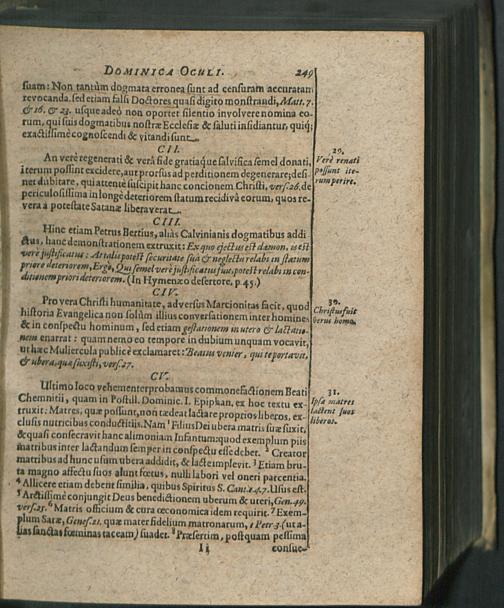 DOMINICA OCULI. 249
suam: Non tantùm dogmata erronea sunt ad censuram accuratam
revocanda, sed etiam falsi Doctores quasi digito monstrandi, Matt. 7.
& 16. & 23. usque adeò non oportet silentio involvere nomina eo-
rum, qui suis dogmatibus nostræ Ecclesiæ & saluti insidiantur, quiq;
exactissimè cognoscendi & vitandi sunt.
CII.
An verè regenerati & verâ fide gratiaque salvifica semel donati,
iterum possint excidere, aut prorsus ad perditionem degenerare; desi-
net dubitare, qui attentè suscipit hanc concionem Christi, vers. 26. de
periculosissima in longè deteriorem statum recidivâ eorum, quos re-
vera à potestate Satanæ liberaverat.
29.
Verè renati
possunt ite-
rum perire.
CIII.
Hinc etiam Petrus Bertius, aliàs Calvinianis dogmatibus addi
ctus, hanc demonstrationem extruxit: Ex quo ejectus est dæmon, is est
verè justificatus: At talis potest securitate sua & neglectu relabi in statum
priore deteriorem, Ergò, Qui semel verè justificatus fuit, potest relabi in con-
ditionem priori deteriorem. (In Hymenæo desertore, p. 45.)
CIV.
Pro vera Christi humanitate, adversus Marcionitas facit, quod
historia Evangelica non solùm illius conversationem inter homines
& in conspectu hominum, sed etiam gestationem in utero & lactatio-
nem enarrat: quam nemo eo tempore in dubium unquam vocavit,
ut hæc Muliercula publicè exclamaret: Beatus venter, qui te portavit,
& ubera, quæ suxisti, vers. 27.
30.
Christus fuit
verus homo.
CV.
Ultimo loco vehementer probamus commonefactionem Beati
Chemnitii, quam in Postill. Dominic. I. Epiphan. ex hoc textu ex-
truxit: Matres, quæ possunt, non tædeat lactare proprios liberos, ex-
clusis nutricibus conductitiis. Nam 1 Filius Dei ubera matris suæ suxit,
& quasi consecravit hanc alimoniam Infantum: quod exemplum piis
matribus inter lactandum semper in conspectu esse debet. 2 Creator
matribus ad hunc usum ubera addidit, & lacte implevit. 3 Etiam bru-
ta magno affectu suos alunt fœtus, nulli labori vel oneri parcentia.
4 Allicere etiam debent similia, quibus Spiritus S. Cant. 4. 7. Usus est.
5 Arctissimè conjungit Deus benedictionem uberum & uteri, Gen. 49.
vers. 25. 6 Matris officium & cura œconomica idem requirit. 7 Exem-
plum Saræ, Genes. 21. quæ mater fidelium matronarum, 1 Petr. 3. (ut a-
lias sanctas fœminas taceam) suadet. 8 Præsertim, postquam pessima
31.
Ipsæ matres
lactent suos
liberos.
I i consue-